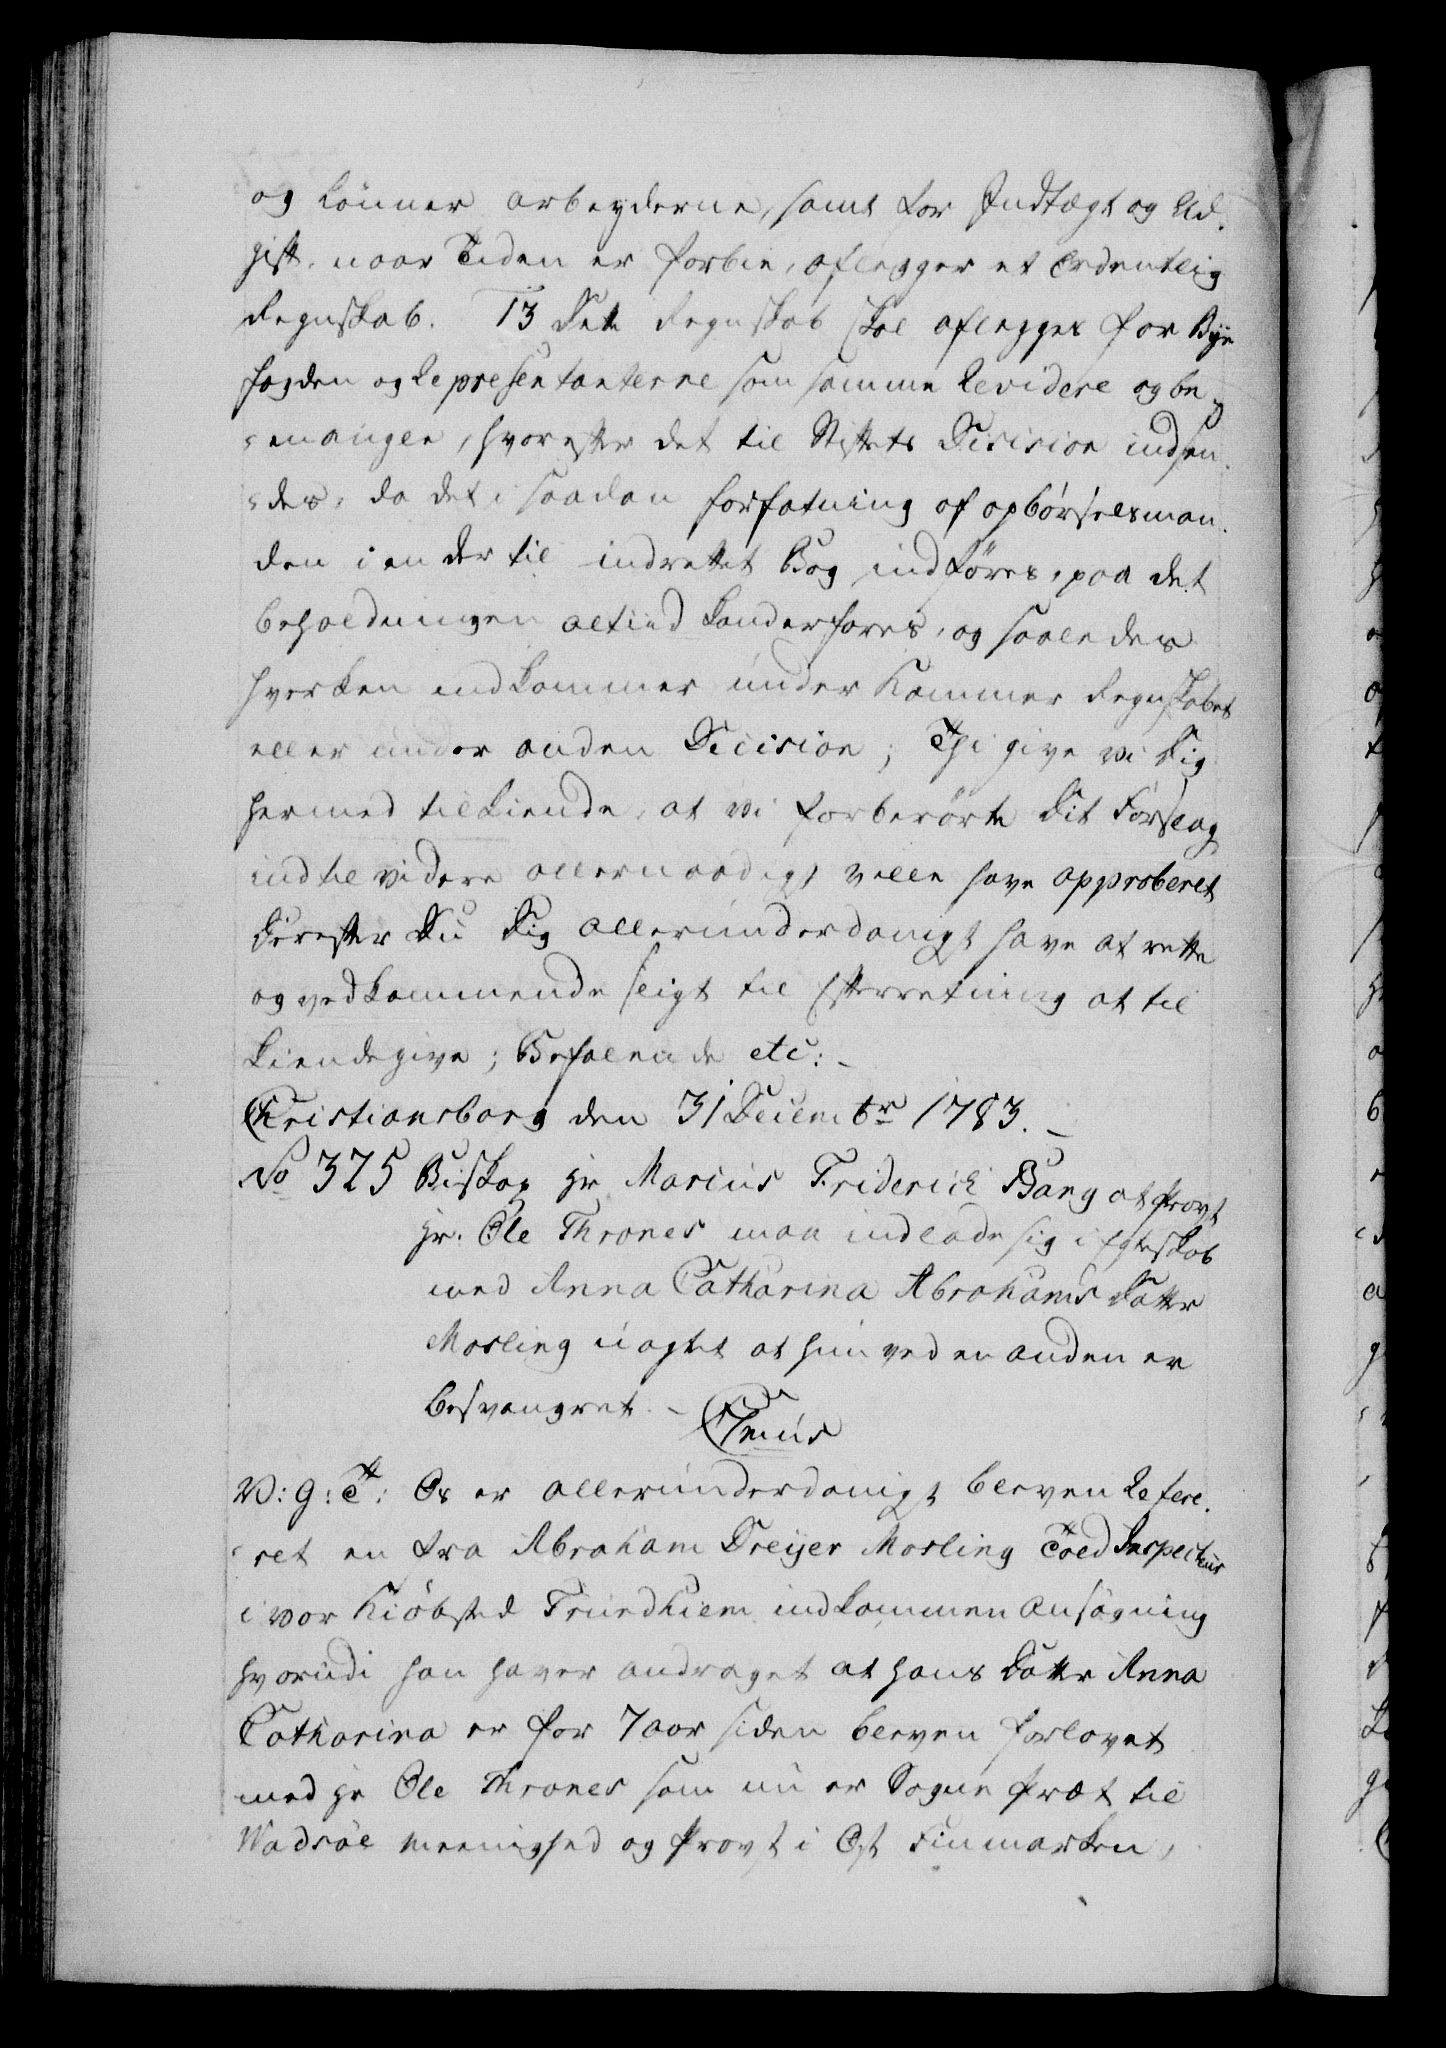 og lønner arbeyderne, samt for Indtægt og Ud-
gift, naar Tiden er forbie, aflegger et Ordentlig
Regnskab. 13 Det Regnskab skal aflegges for Bye
fogden og Repræsentanterne som samme Revidere og be-
, hvorefter det til Stiftets Decision indsen-
des, da det i saadan forfatning af opbørselsman-
den i en der til indrettet Bog indføres, paa det
beholdningen altiid kand erfares, og saaledes
hverken indkommer under Kammer Regnskabet
eller under anden Decision; Thi give vi Dig
hermed tilkiende, at vi forberørte Dit Forslag
indtil videre allernaadigst ville have approberet
Derefter Du Dig allerunderdanigst have at rette
og vedkommende sligt til Efterretning at til
kiendegive; Befalende etc:
Christiansborg den 31 Decembr 1783.
No 325 Biskop Hr Marius Friderich Bang at Provst
Hr. Ole Thrones maa indlade sig i Egteskab
med Anna Catharina Abrahams Datter
Mosling uagtet at hun ved en anden er
besvangret.
C 7mus
V: G: T: Os er allerunderdanigst bleven Refere-
ret en fra Abraham Dreyer Mosling Told Inspecteur
i vor Kiøbsted Trundhiem indkommen Ansøgning
hvorudi han haver andraget at hans Datter Anna
Catharina er for 7 aar siden bleven forlovet
med Hr Ole Thrones som nu er Sogne Præst til
Wadsøe meenighed og Provst i Øst Finmarken,